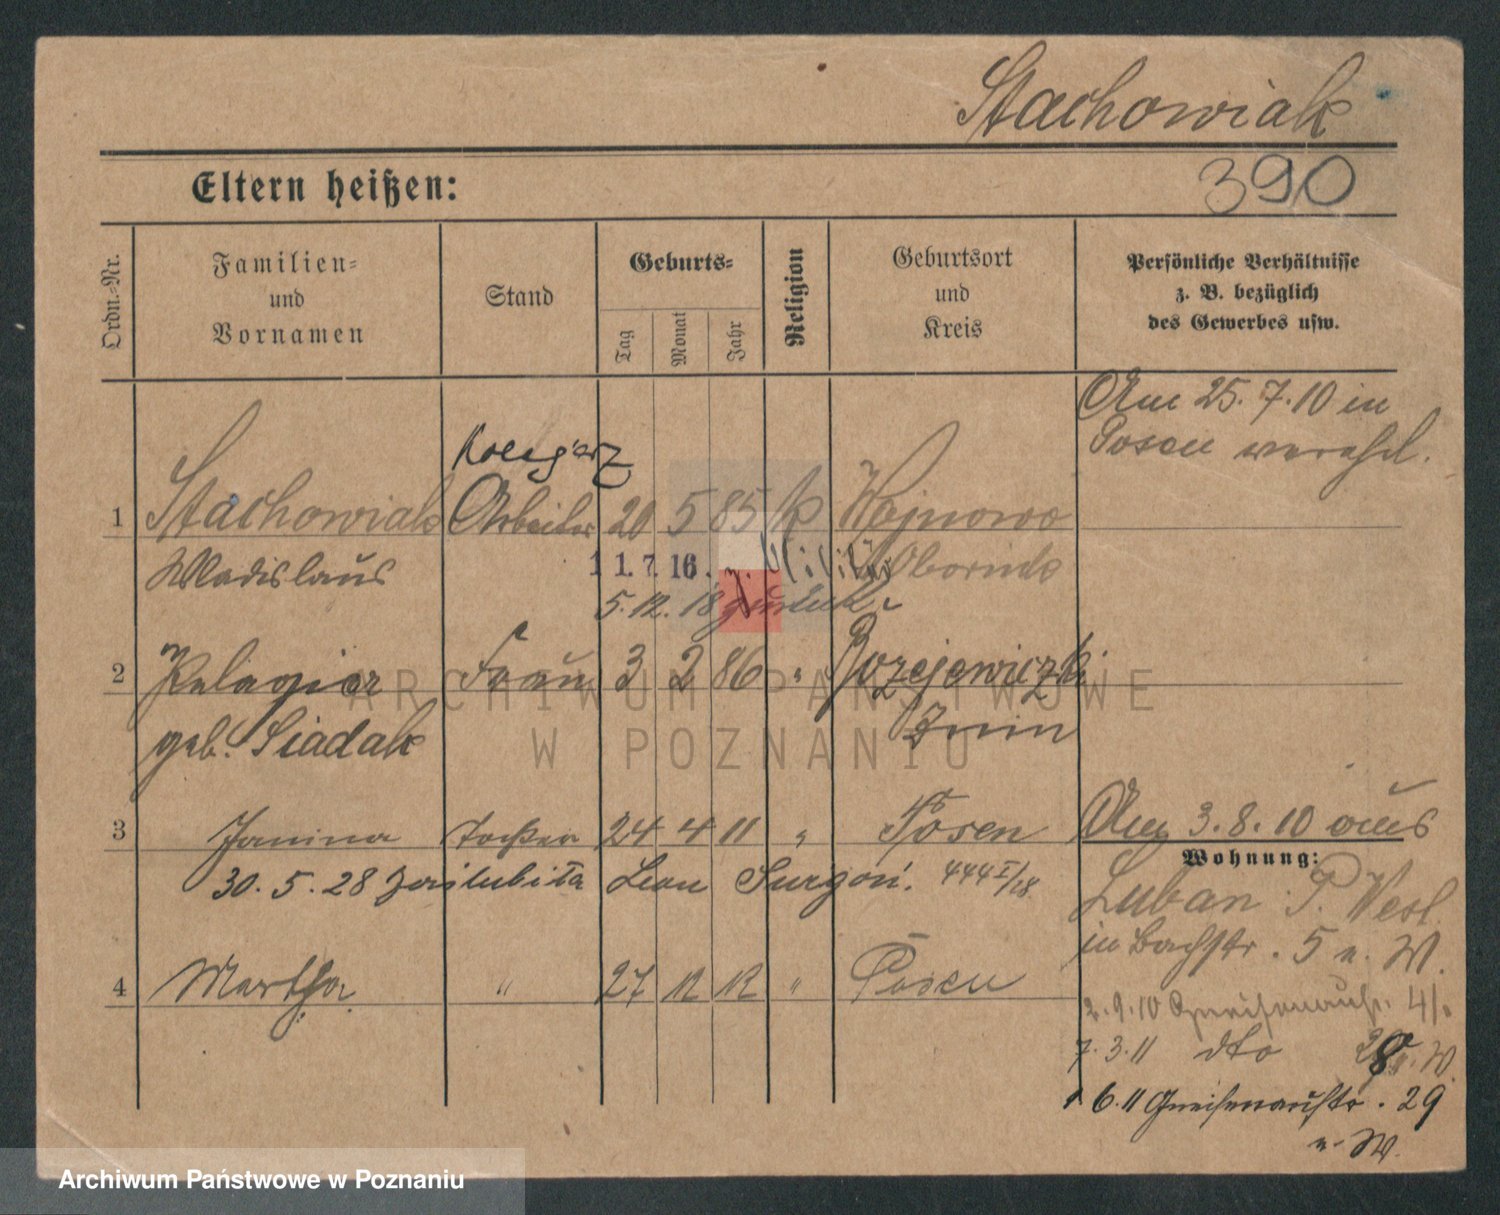 Stachowiak
390
Eltern heißen:
Ordn.-Nr.
Familien-
und
Vornamen
Stand
Geburts-
Tag
Monat
Jahr
Religion
Geburtsort
und
Kreis
Persönliche Verhältnisse
z. B. bezüglich
des Gewerbes usw.
Am 25. 7. 10 in
Posen verehel.
1 Stachowiak Arbeiter 20 5 85 k Wojnowo
Wladislaus Obornik
11. 7. 16. z. Militär
5. 12. 18 zurück
2 Pelagia Frau 3 2 86 " Bożejewiczki
geb. Siadak Znin
3 Janina Tochter 24 4 11 " Posen
30. 5. 28 Leon Surgoń. 444 I/28
4 Martha " 27 12 12 " Posen
Am 3. 8. 10 aus
Wohnung:
Luban P. West
in Bachstr. 5 n. W.
2. 9. 10 Gneisenaustr. 4
7. 3. 11 dto 28 n. W.
1 6. 11 Gneisenaustr. 29
n. W.
ARCHIWUM PAŃSTWOWE
W POZNANIU
Archiwum Państwowe w Poznaniu